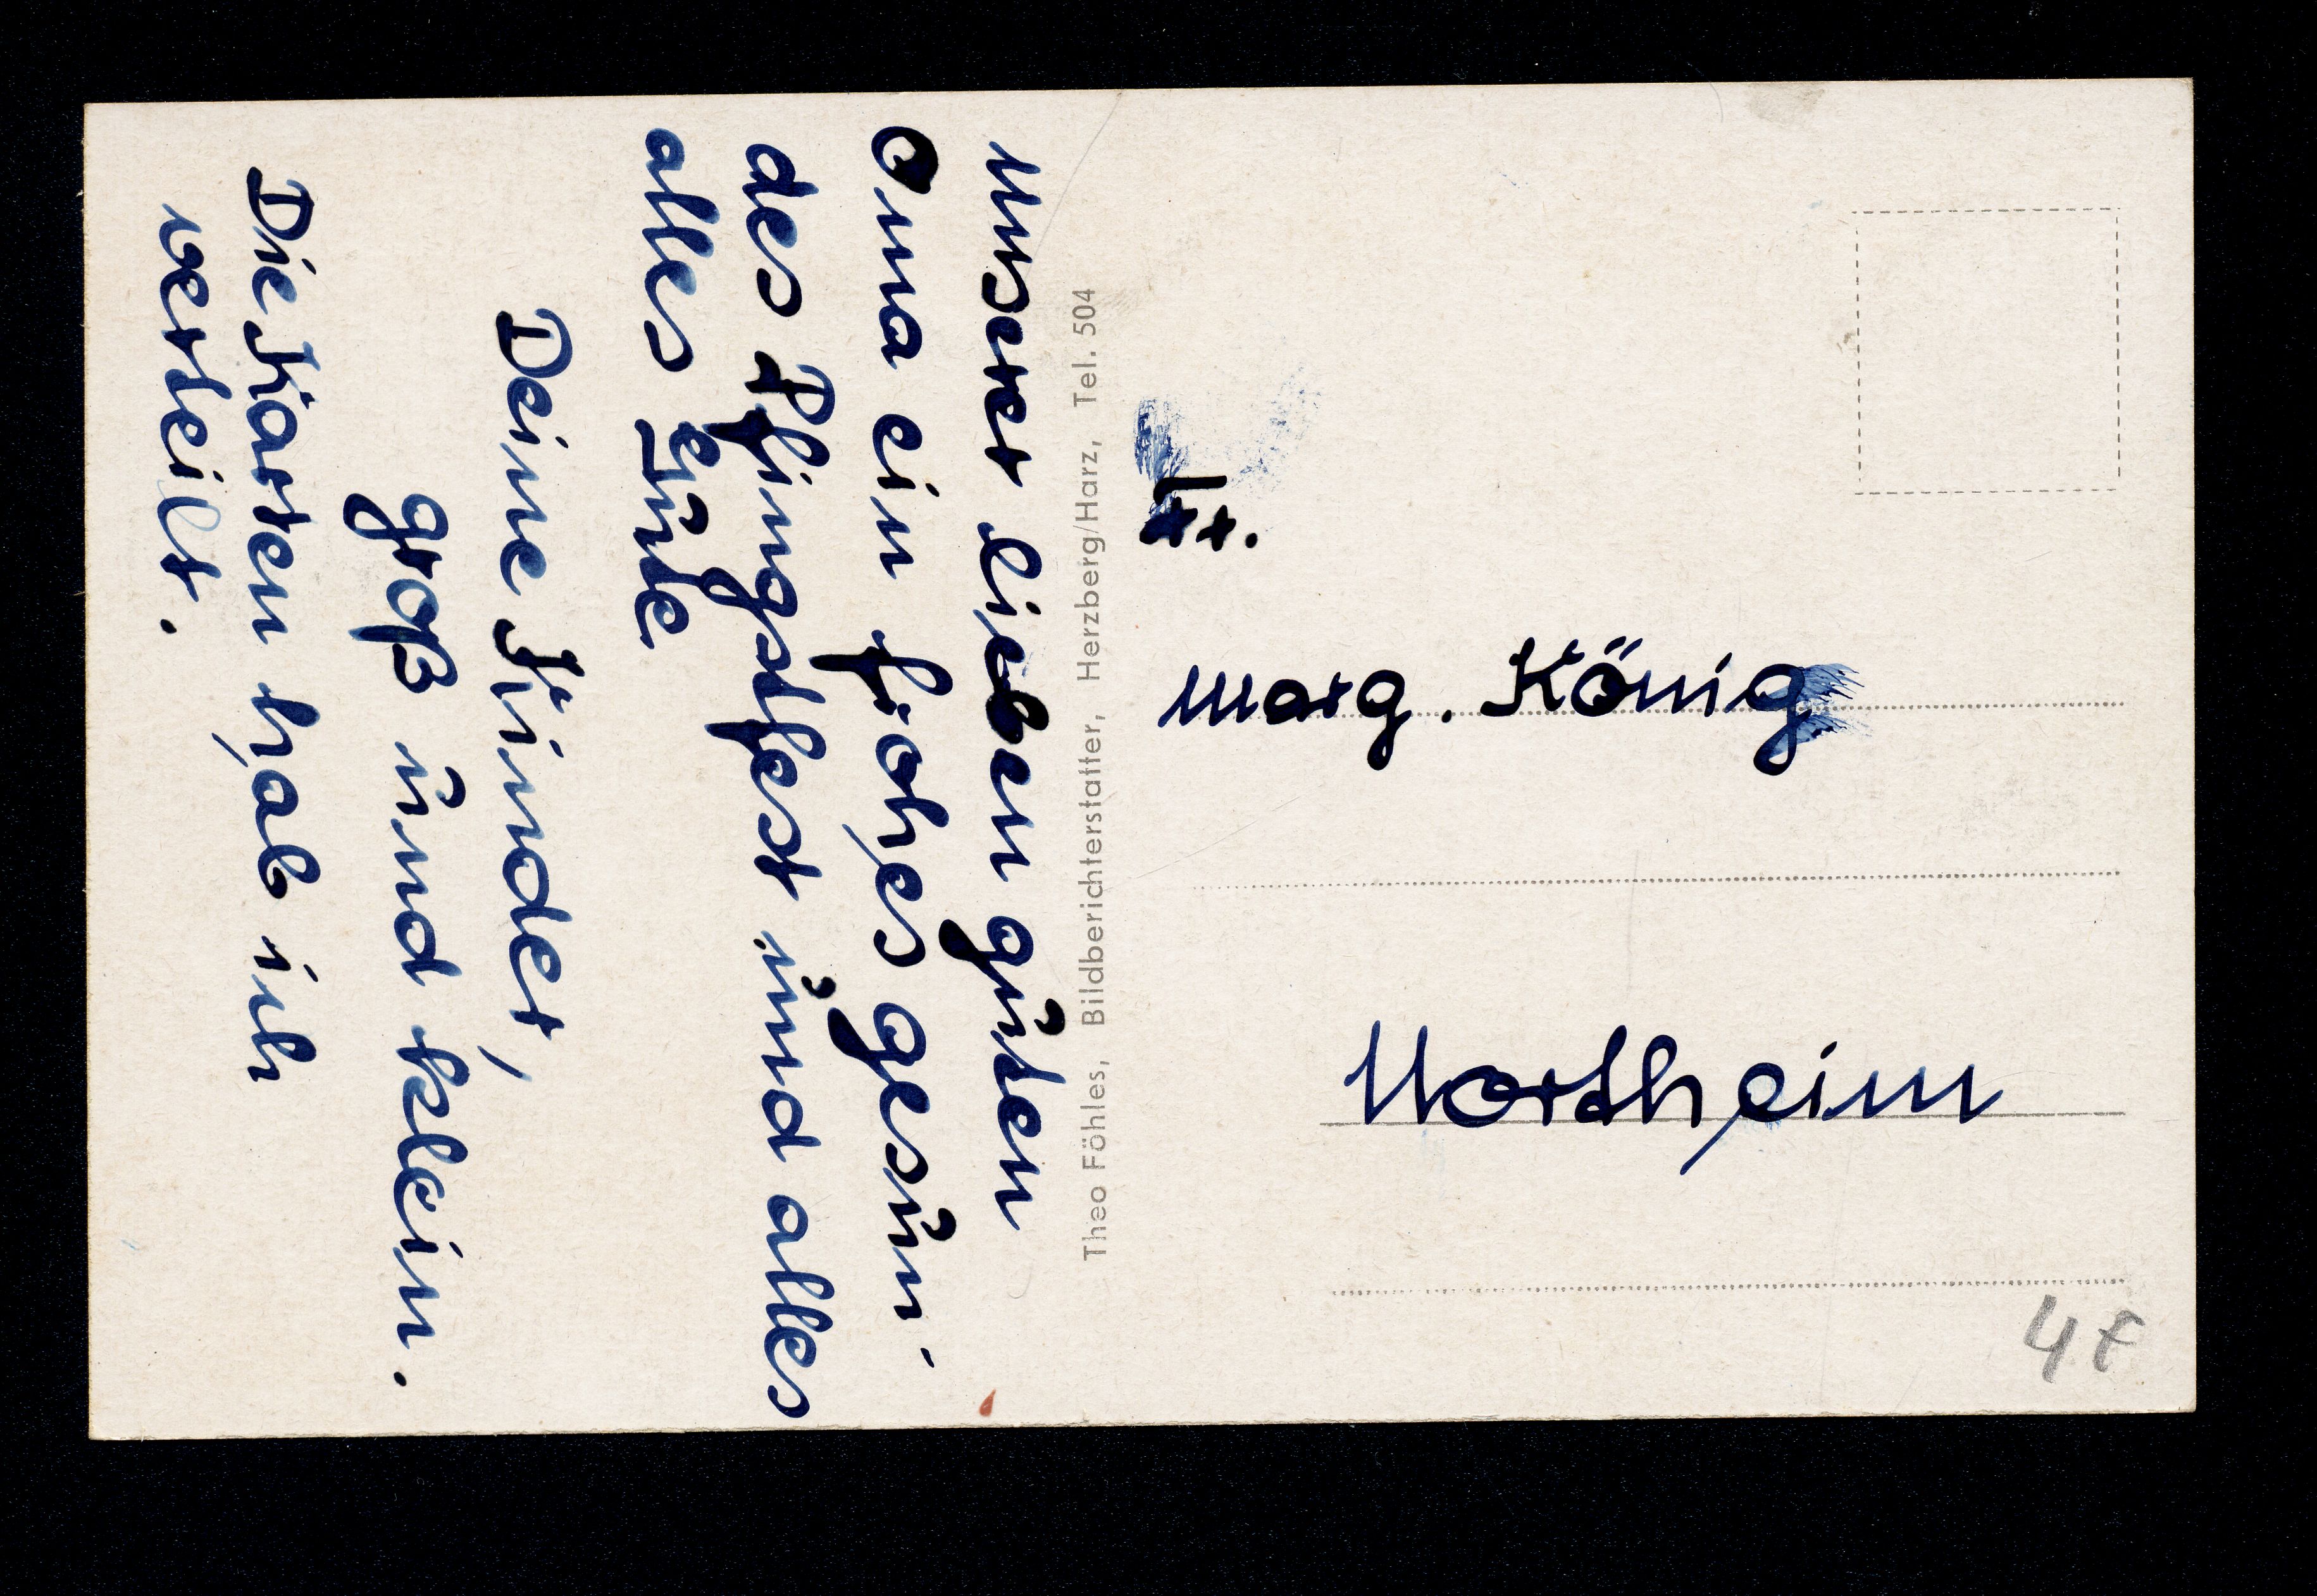 Unserer lieben guten
Oma ein frohes gesun-
des Pfingstfest und alles
alles Gute
Deine Kinder,
groß und klein.
Die Karten hab ich
verteilt.
Theo Föhles, Bildberichterstatter, Herzberg/Harz, Tel. 504
Fr.
Marg. König
Northeim